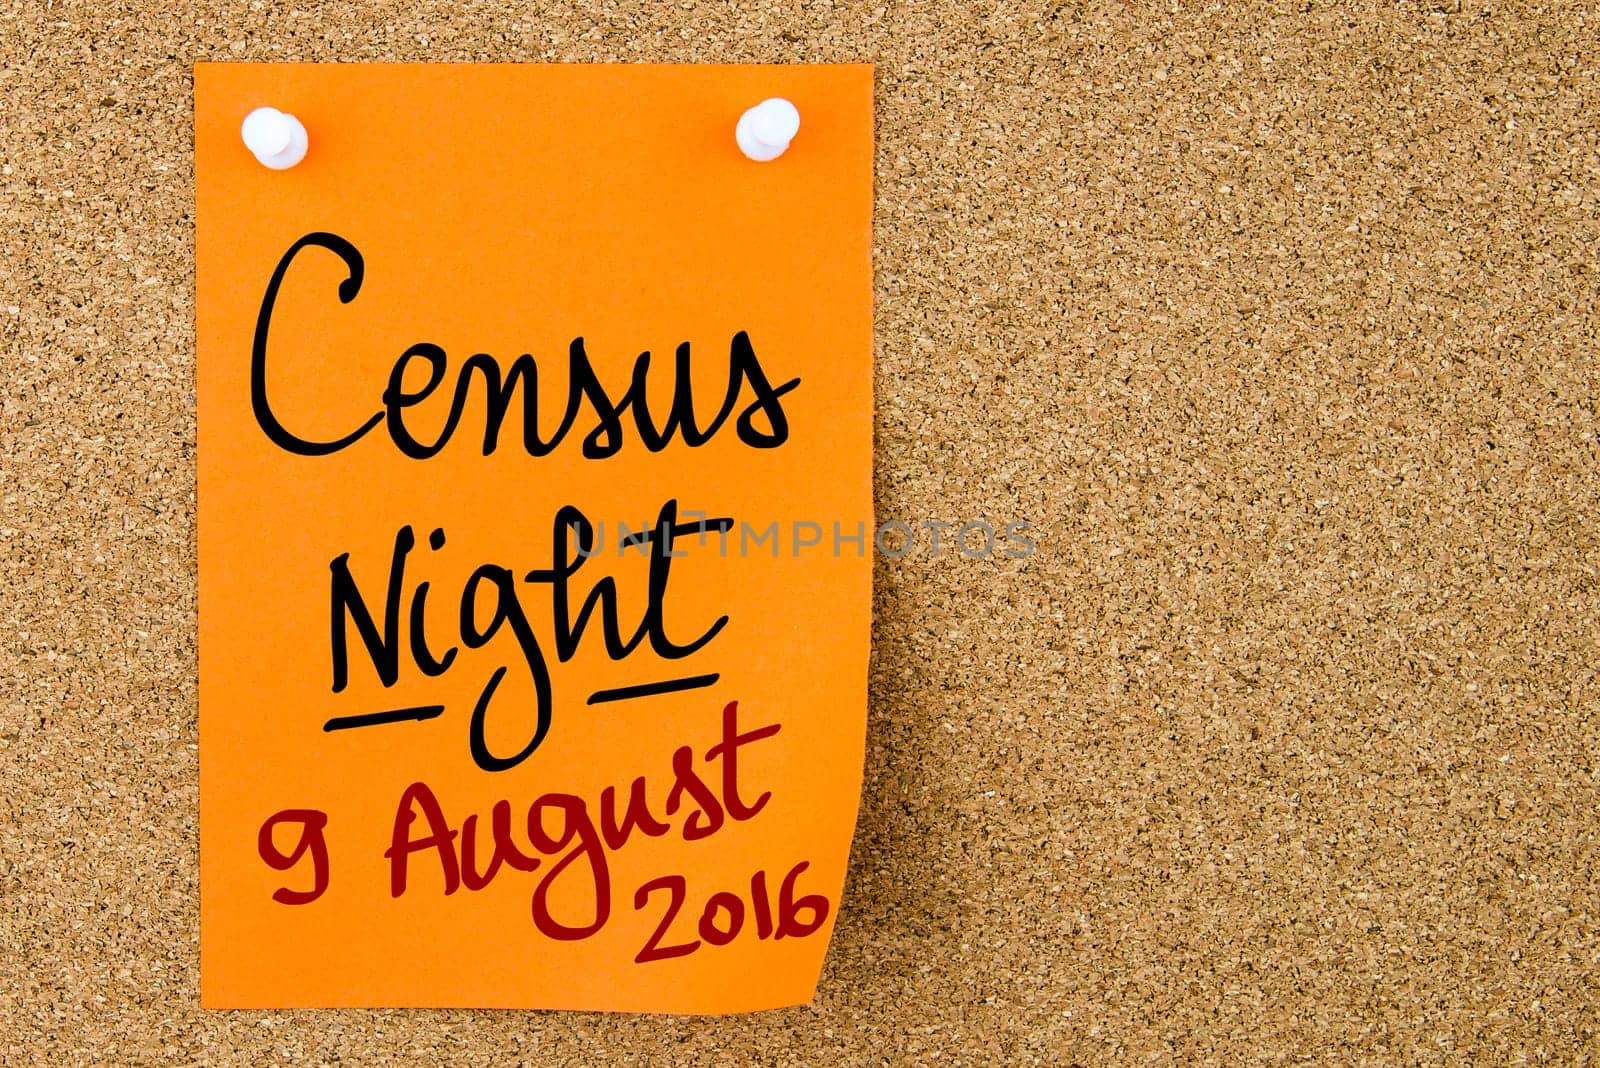 Census
Night
UNLIMPHOTOS
9 August
2016